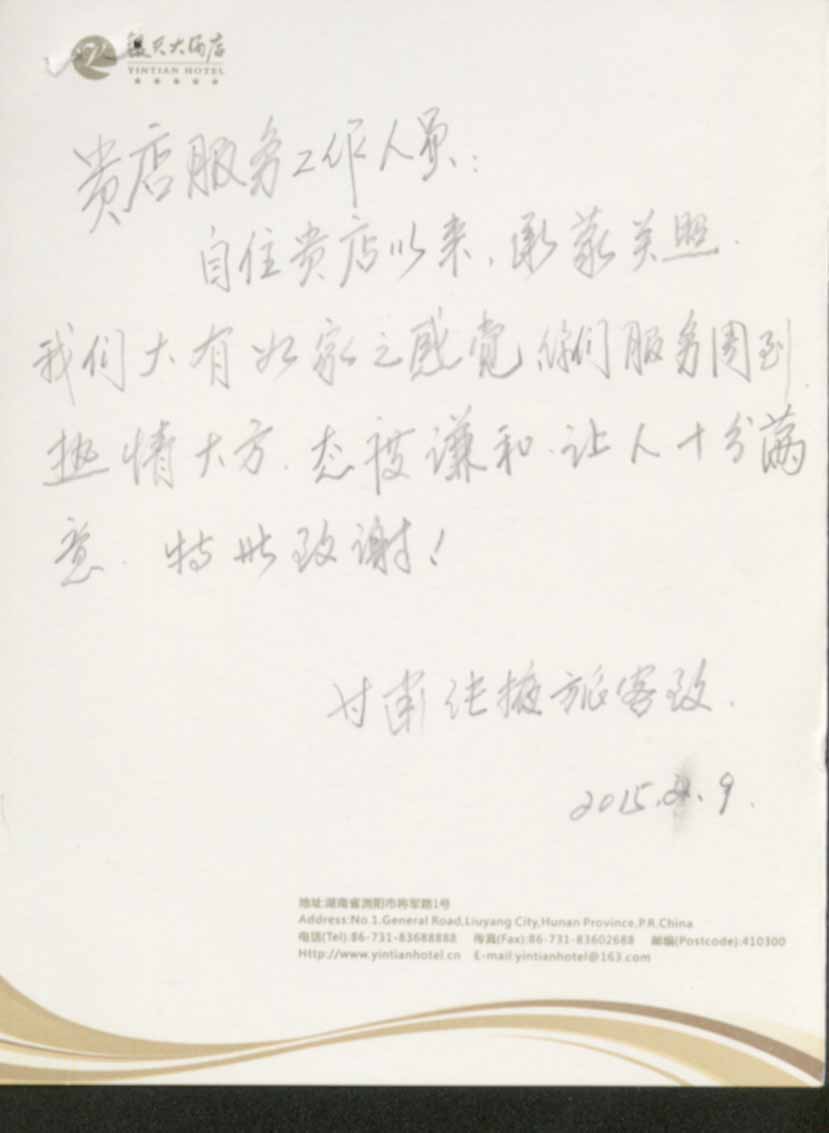 银天大酒店
YINTIAN HOTEL
贵店服务工作人员:
自住贵店以来,承蒙关照.
我们大有如家之感觉,你们服务周到.
热情大方.态度谦和.让人十分满
意.特此致谢!
甘肃张掖旅客致.
2015. .9.
地址:湖南省浏阳市将军路1号
Address:No.1.General Road,Liuyang City,Hunan Province,P.R.China
电话(Tel):86-731-83688888 传真(Fax):86-731-83602688 邮编(Postcode):410300
Http://www.yintianhotel.cn E-mail:yintianhotel@163.com